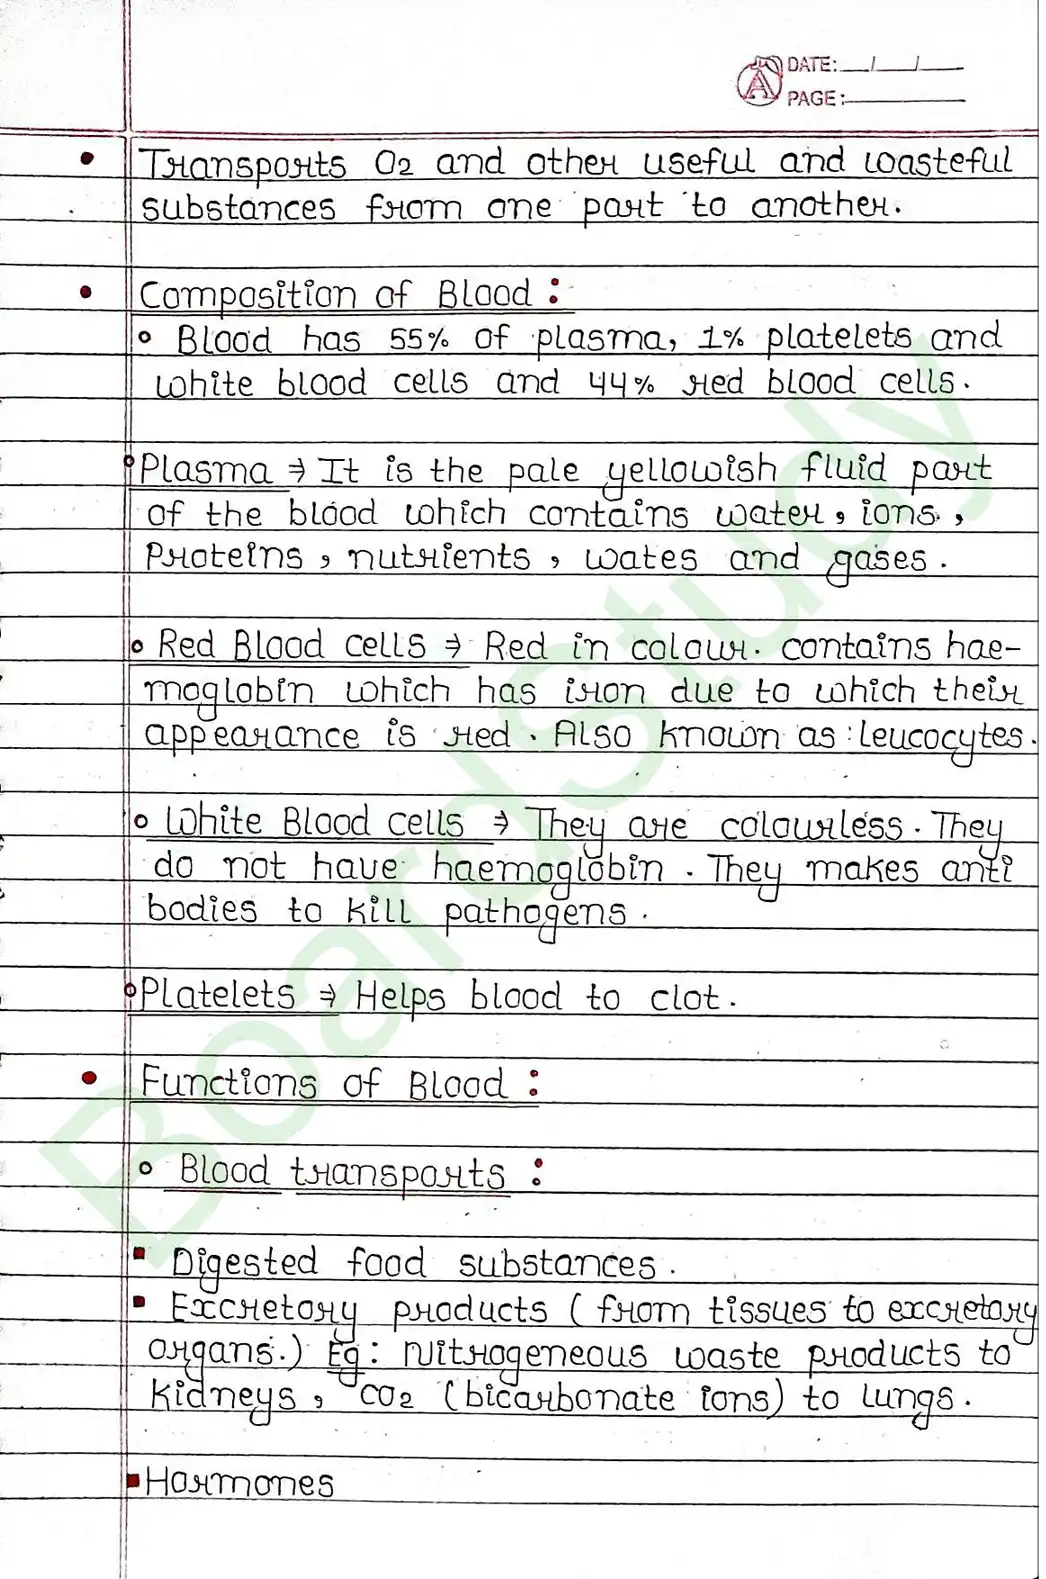 DATE: __/__/__
PAGE:
Transports O2 and other useful and wasteful
substances from one part to another.
Composition of Blood :
Blood has 55% of plasma, 1% platelets and
white blood cells and 44% red blood cells.
Plasma ⇒ It is the pale yellowish fluid part
of the blood which contains water, ions,
Proteins, nutrients, wates and gases.
Red Blood cells ⇒ Red in colour. contains hae-
moglobin which has iron due to which their
appearance is red. Also known as leucocytes.
White Blood cells ⇒ They are colourless. They
do not have haemoglobin. They makes anti
bodies to kill pathogens.
Platelets ⇒ Helps blood to clot.
Functions of Blood :
Blood transports :
Digested food substances.
Excretory products (from tissues to excretory
organs.) Eg: Nitrogeneous waste products to
kidneys, CO2 (bicarbonate ions) to lungs.
Hormones
BoardStudy